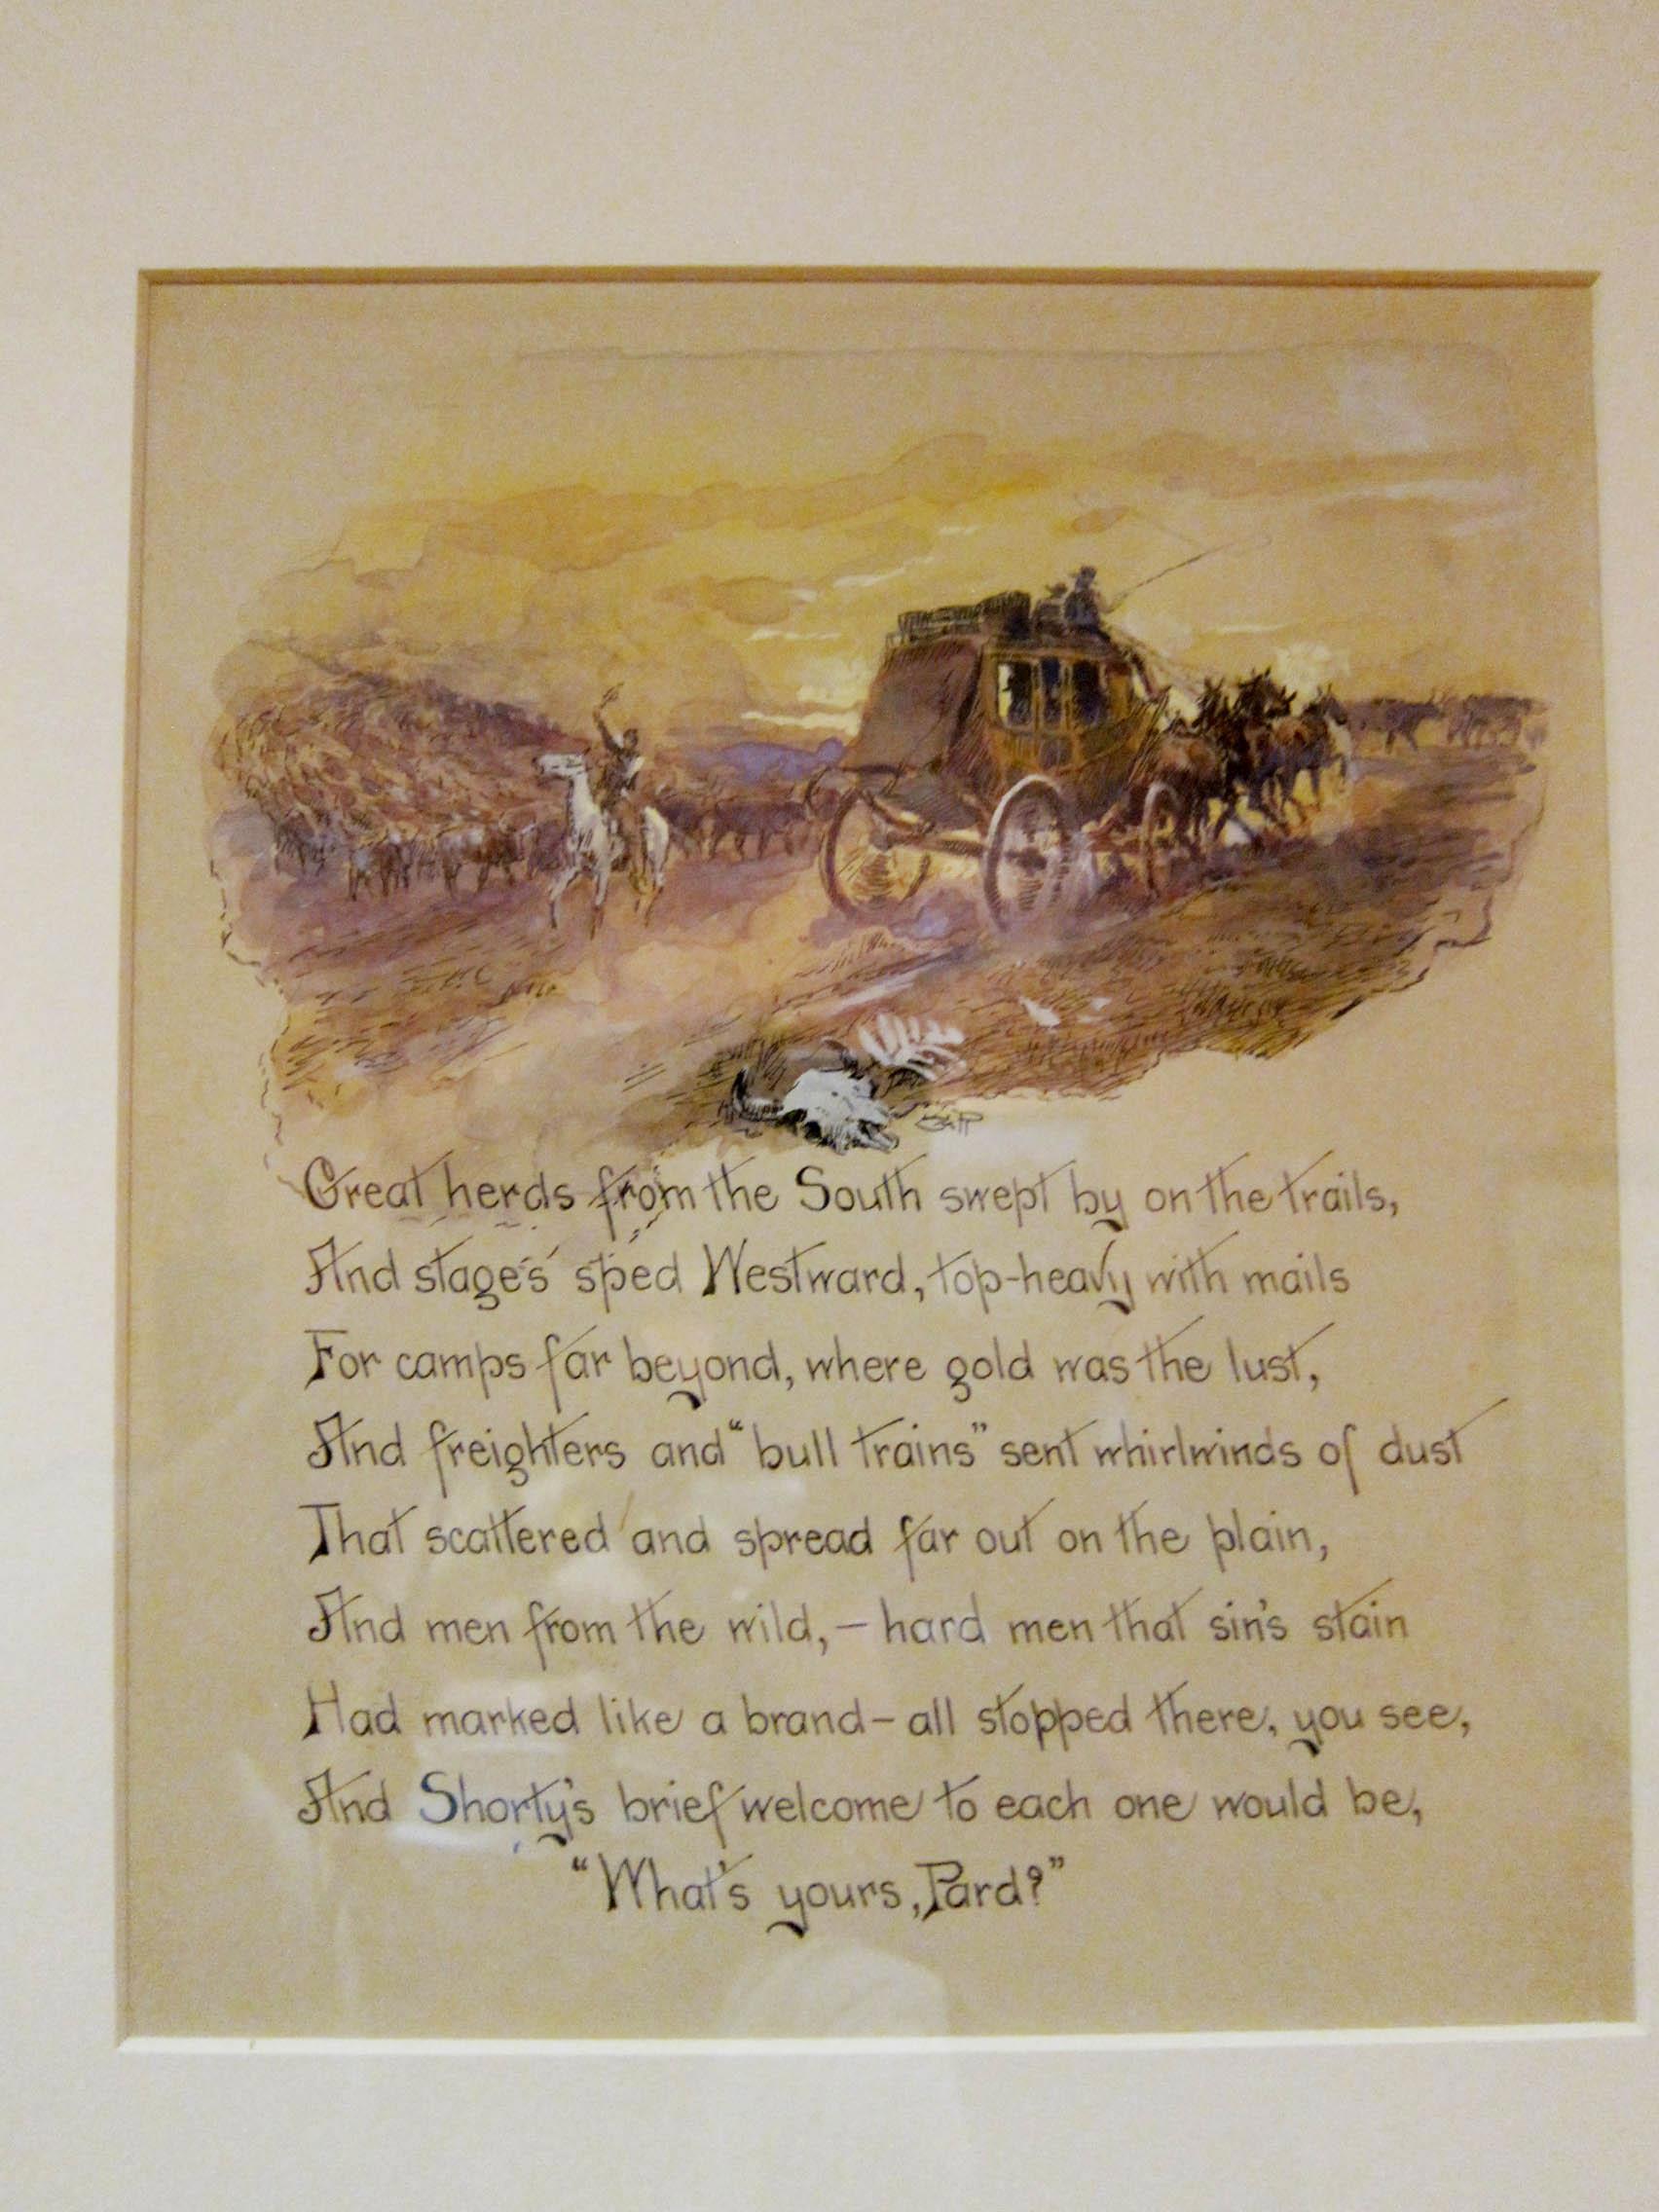 Great herds from the South swept by on the trails,
And stages sped Westward, top-heavy with mails
For camps far beyond, where gold was the lust,
And freighters and "bull trains" sent whirlwinds of dust
That scattered and spread far out on the plain,
And men from the wild, — hard men that sin's stain
Had marked like a brand — all stopped there, you see,
And Shorty's brief welcome to each one would be,
"What's yours, Pard?"